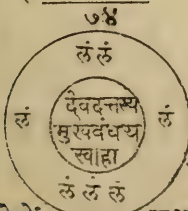 ७४
लं लं
देवदत्तस्य
लं मुखबंधय लं
स्वाहा
लं लं लं